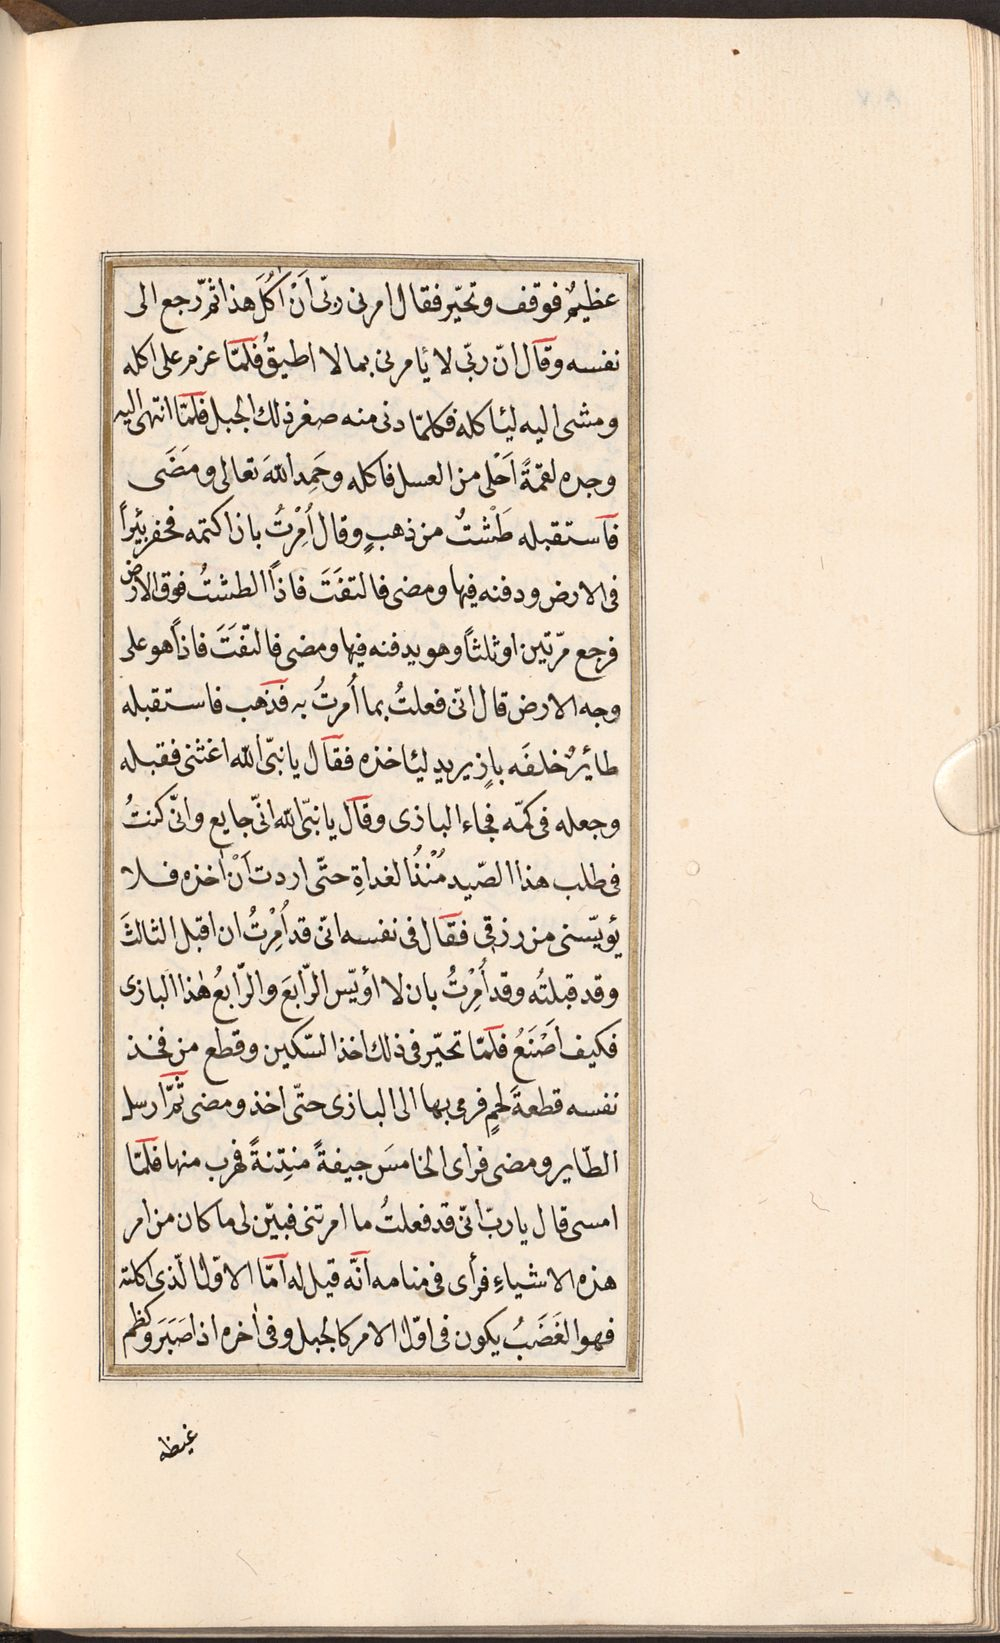 عظيمٌ فوقف وتحيّر فقال امرنى ربّى اَنْ اٰكُلَ هذا ثمّ رجع الى
نفسه وقال انّ ربّى لا ئامرنى بما لا اطيقُ فلمّا عزم على اكله
ومشى اليه لئاكله فكلمّا دنى منه صغر ذلك الجبل فلمّا انتهى اليه
وجده لقمةً اَحْلٰى من العسل فاكله وحَمِدَ اللّٰهَ تعالى ومَضَى
فاستقبله طَشْتٌ من ذهبٍ وقال اُمِرْتُ بان اكتمه فحفر بئيراً
فى الارض ودفنه فيها ومضى فالتفَتَ فاذاً الطشتُ فوق الارض
فرجع مرّتين اوثلثاً وهو يدفنه فيها ومضى فالتفَتَ فاذاً هو على
وجه الارض قال انّى فعلتُ بما اُمرتُ به فذهب فاستقبله
طائيرٌ خلفَه بازٍ يريد لئاخذه فقال يا نبىّ اللّٰه اغثنى فقبله
وجعله فى كمّه فجاء البازى وقال يا نبىّ اللّٰه انّى جايع وانّى كنتُ
فى طلب هذا الصّيد مُنْذُ الغداةِ حتّى اردت اَنْ اٰخذه فلا
يؤيّسنى من رزقى فقال فى نفسه انّى قد اُمِرْتُ ان اقبل الثالثَ
وقد قبلتُه وقد اُمِرْتُ بان لا اُؤيّس الرّابعَ والرّابعُ هٰذا البازى
فكيف اَصْنَعُ فلمّا تحيّر فى ذلك اخذ السّكين وقطع من فخذ
نفسه قطعةَ لحمٍ فرمى بها الى البازى حتّى اخذ ومضى ثُمَّ ارسل
الطّاير ومضى فراى الخامسَ جيفةً منتِنةً فهرب منها فلمّا
امسى قال يا ربّ انّى قد فعلتُ ما امرتنى فبيّن لى ما كان من امر
هذه الاشياءِ فرأى فى منامه انّه قيل له امّا الاوّل الّذى اكلته
فهو الغَضَبُ يكون فى اوّل الامر كالجبل وفى اٰخره اذا صَبَرَ وكظم
غيظه